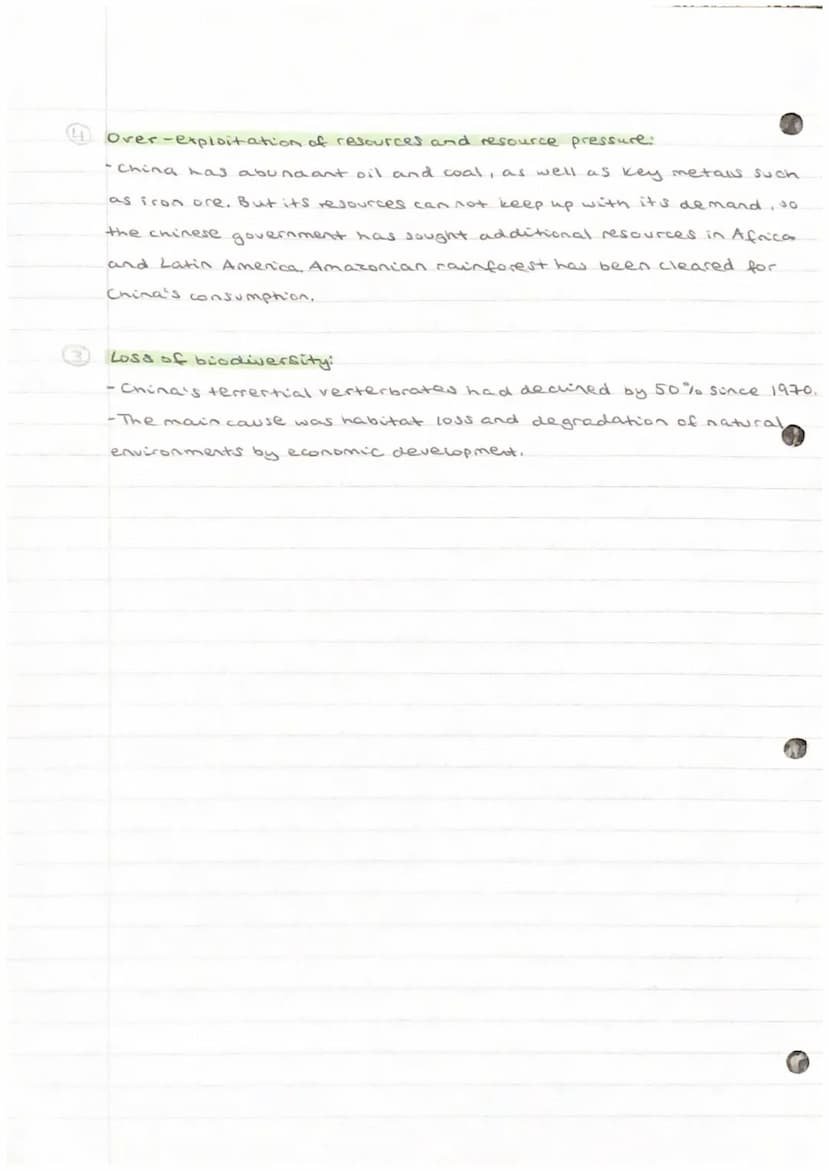 ④ Over-exploitation of resources and resource pressure:
- China has abundant oil and coal, as well as key metals such
as iron ore. But its resources can not keep up with its demand, so
the chinese government has sought additional resources in Africa
and Latin America. Amazonian rainforest has been cleared for
China's consumption.
③ Loss of biodiversity:
- China's terrertial verterbrates had declined by 50% since 1970.
- The main cause was habitat loss and degradation of natural
environments by economic development.